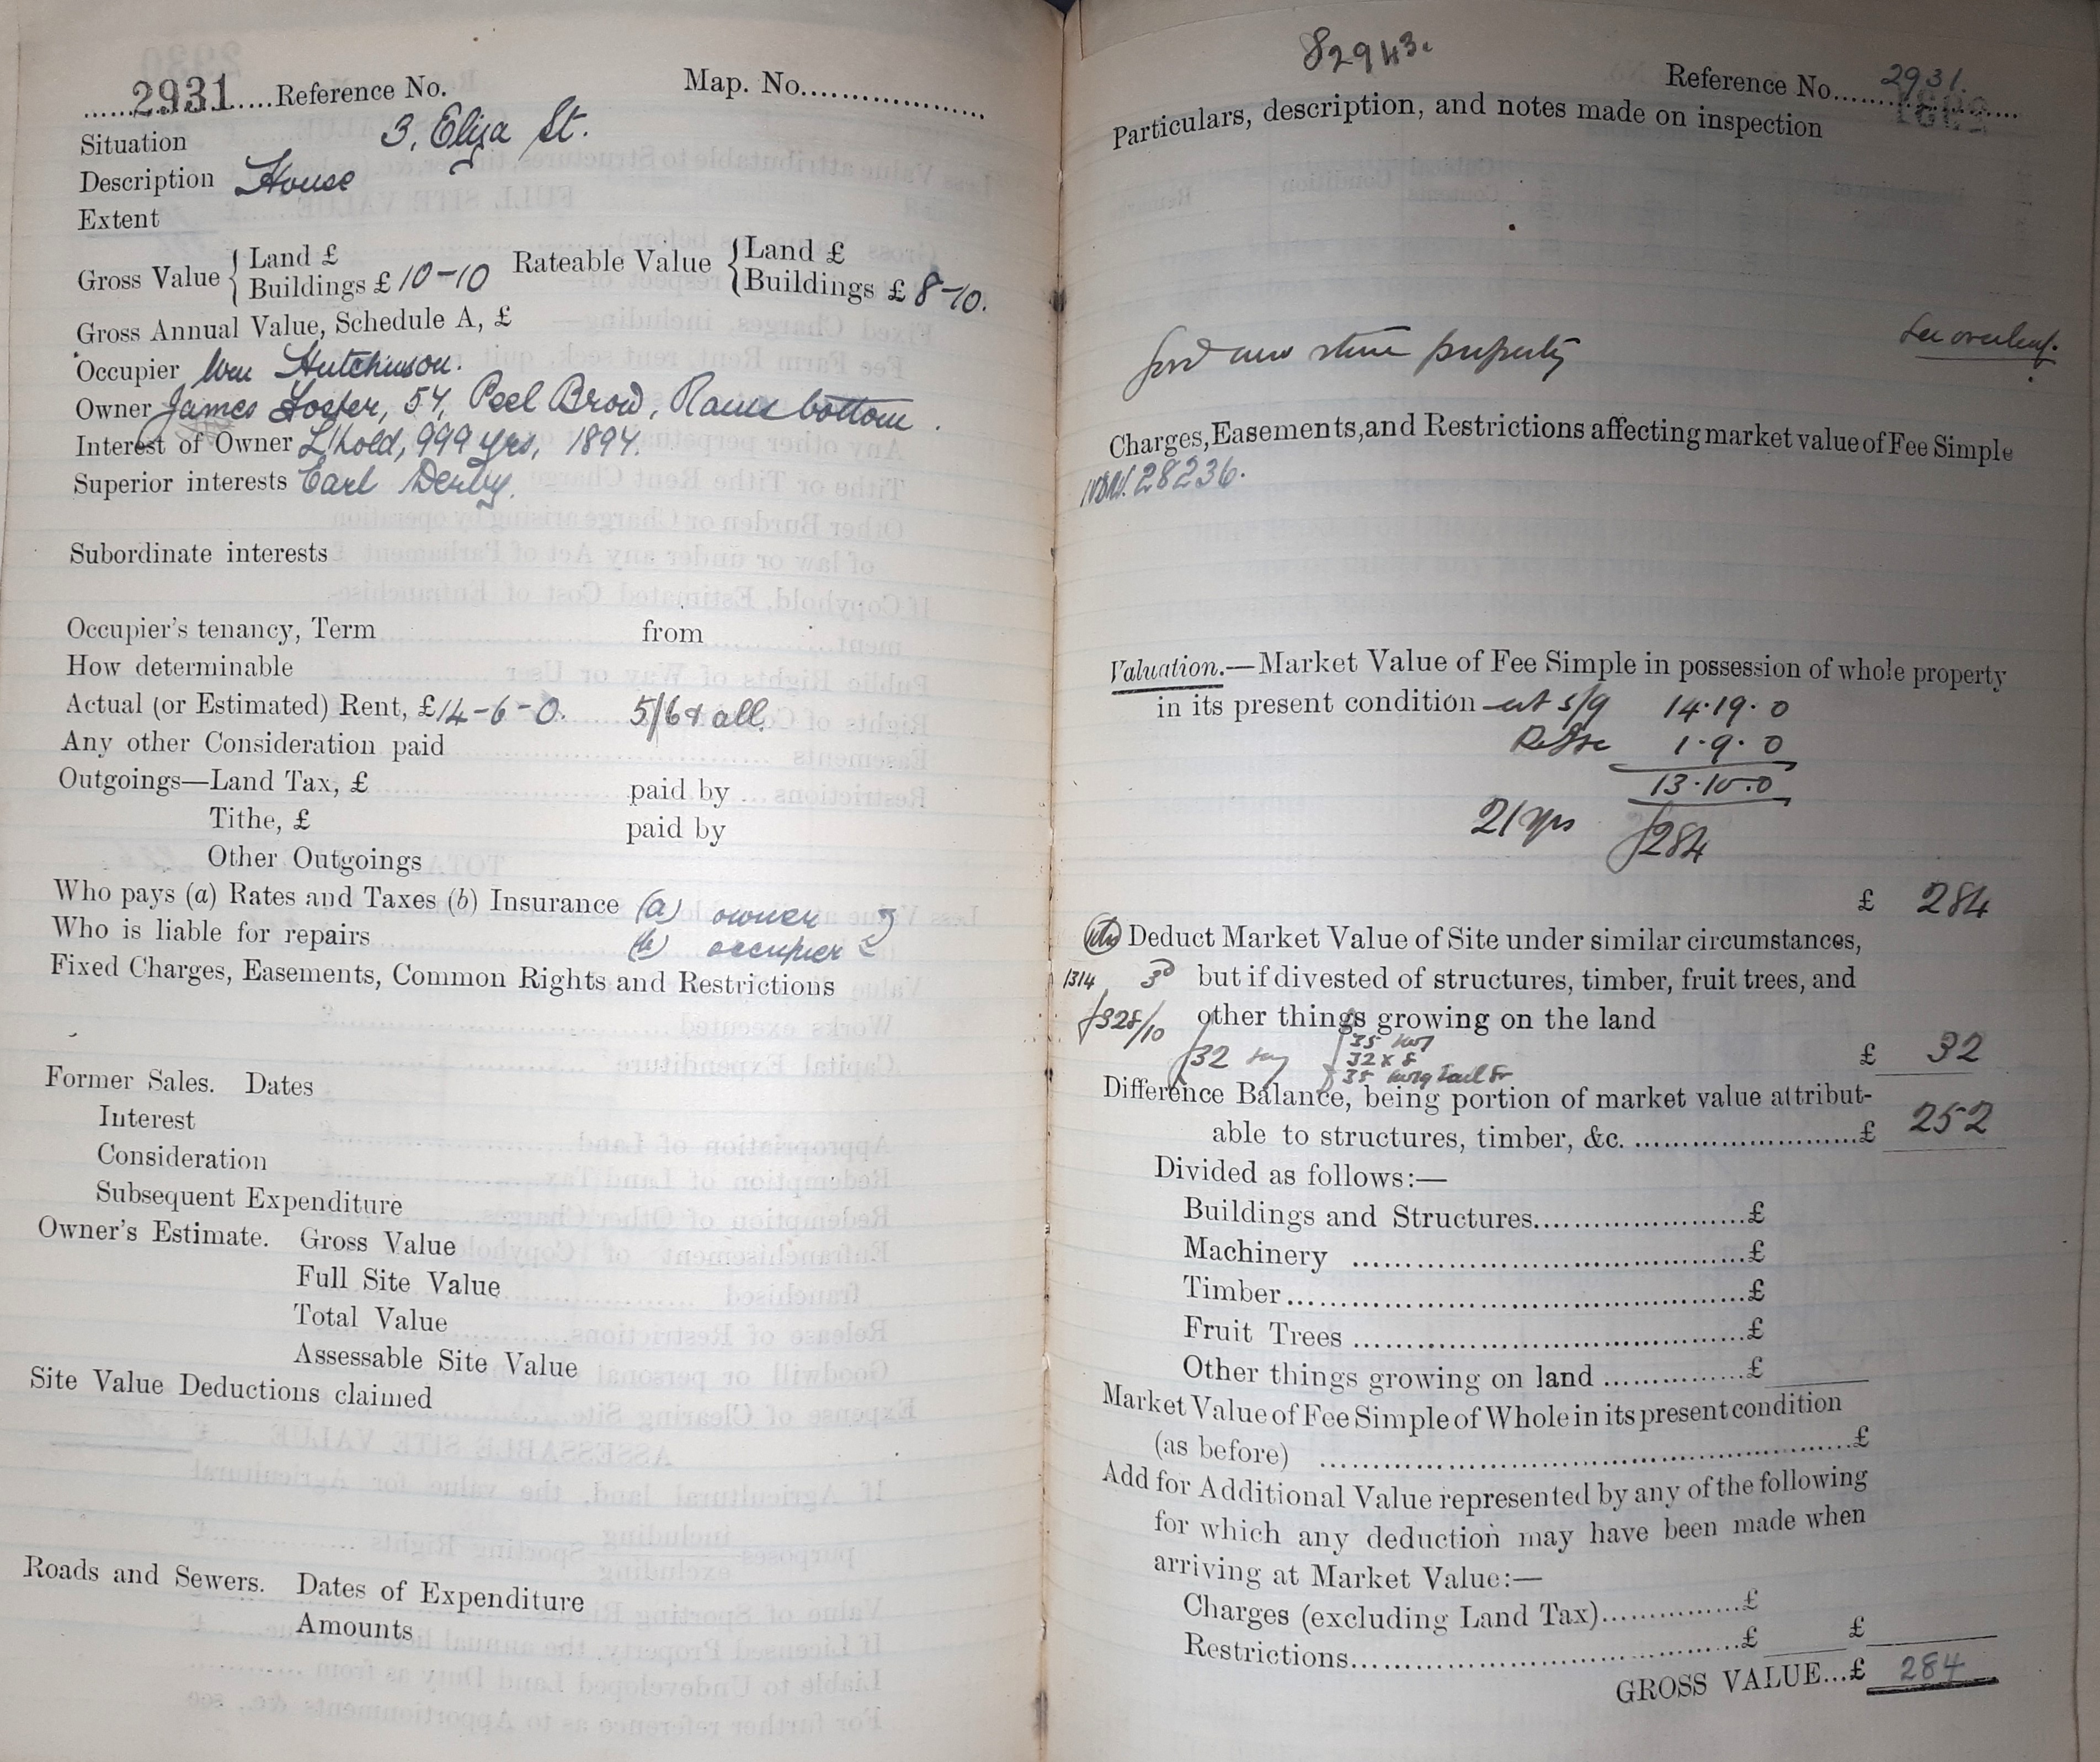 2931 Reference No. Map. No.
Situation 3, Eliza St.
Description House
Extent
Gross Value { Land £ Rateable Value { Land £
Buildings £ 10-10 Buildings £ 8-10.
Gross Annual Value, Schedule A, £
Occupier Wm Hutchinson.
Owner James Foster, 54, Peel Brow, Ramsbottom.
Interest of Owner L'hold, 999 yrs, 1894.
Superior interests Earl Derby.
Subordinate interests
Occupier's tenancy, Term from
How determinable
Actual (or Estimated) Rent, £14-6-0. 5/6 & all.
Any other Consideration paid
Outgoings—Land Tax, £ paid by
Tithe, £ paid by
Other Outgoings
Who pays (a) Rates and Taxes (b) Insurance (a) owner
Who is liable for repairs (b) occupier
Fixed Charges, Easements, Common Rights and Restrictions
Former Sales. Dates
Interest
Consideration
Subsequent Expenditure
Owner's Estimate. Gross Value
Full Site Value
Total Value
Assessable Site Value
Site Value Deductions claimed
Roads and Sewers. Dates of Expenditure
Amounts
82943.
Reference No. 2931.
Particulars, description, and notes made on inspection
See overleaf.
Good new stone property
Charges, Easements, and Restrictions affecting market value of Fee Simple
28236.
Valuation.—Market Value of Fee Simple in possession of whole property
in its present condition at 5/9 14.19.0
1.9.0
13.10.0
21 yrs £284
£ 284
Deduct Market Value of Site under similar circumstances,
1314 3d but if divested of structures, timber, fruit trees, and
£328/10 other things growing on the land
£32 say 32 x 8
£ 32
Difference Balance, being portion of market value attribut-
able to structures, timber, &c. £ 252
Divided as follows:—
Buildings and Structures £
Machinery £
Timber £
Fruit Trees £
Other things growing on land £
Market Value of Fee Simple of Whole in its present condition
(as before) £
Add for Additional Value represented by any of the following
for which any deduction may have been made when
arriving at Market Value:—
Charges (excluding Land Tax) £
Restrictions £ £
GROSS VALUE...£ 284